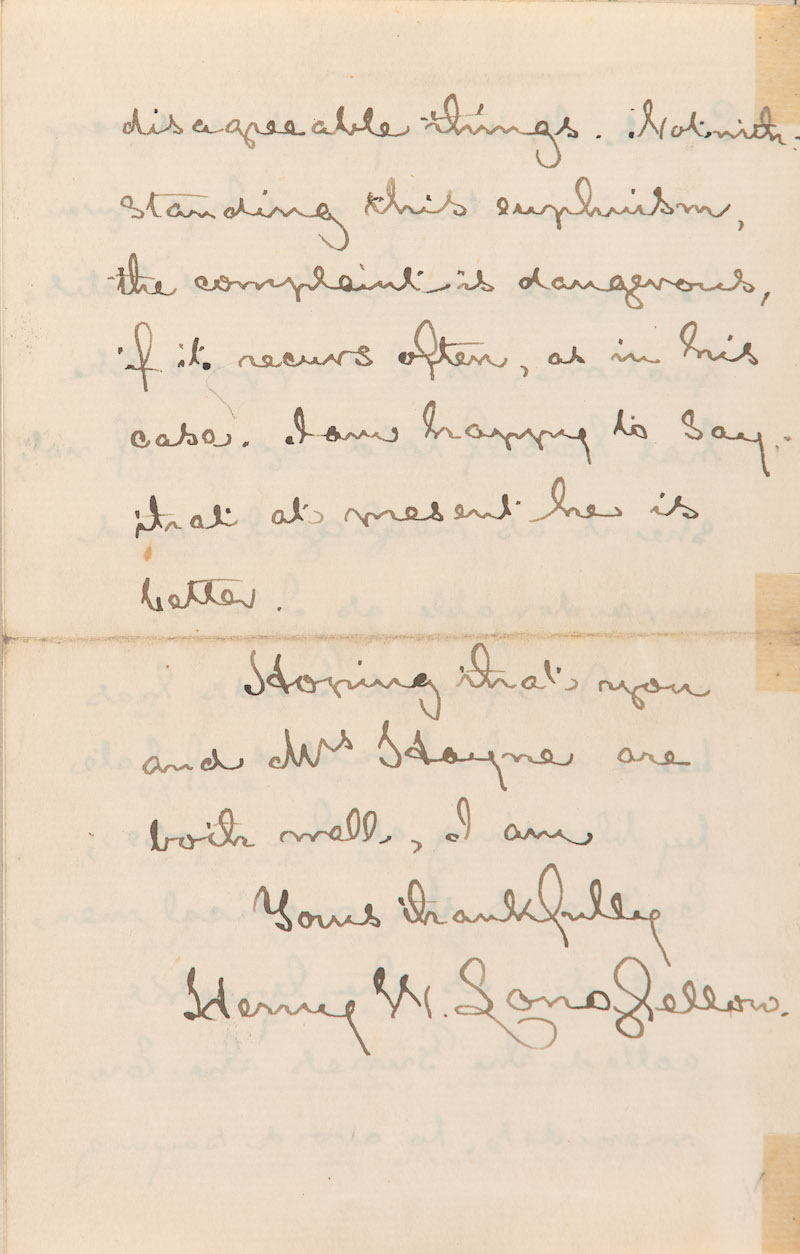 disagreeable things. Notwith-
standing this euphuism,
the complaint is dangerous,
if it recurs often, as in his
case. I am happy to say
that at present he is
better.
Hoping that you
and Mrs Hayne are
both well, I am
Yours thankfully
Henry W. Longfellow.